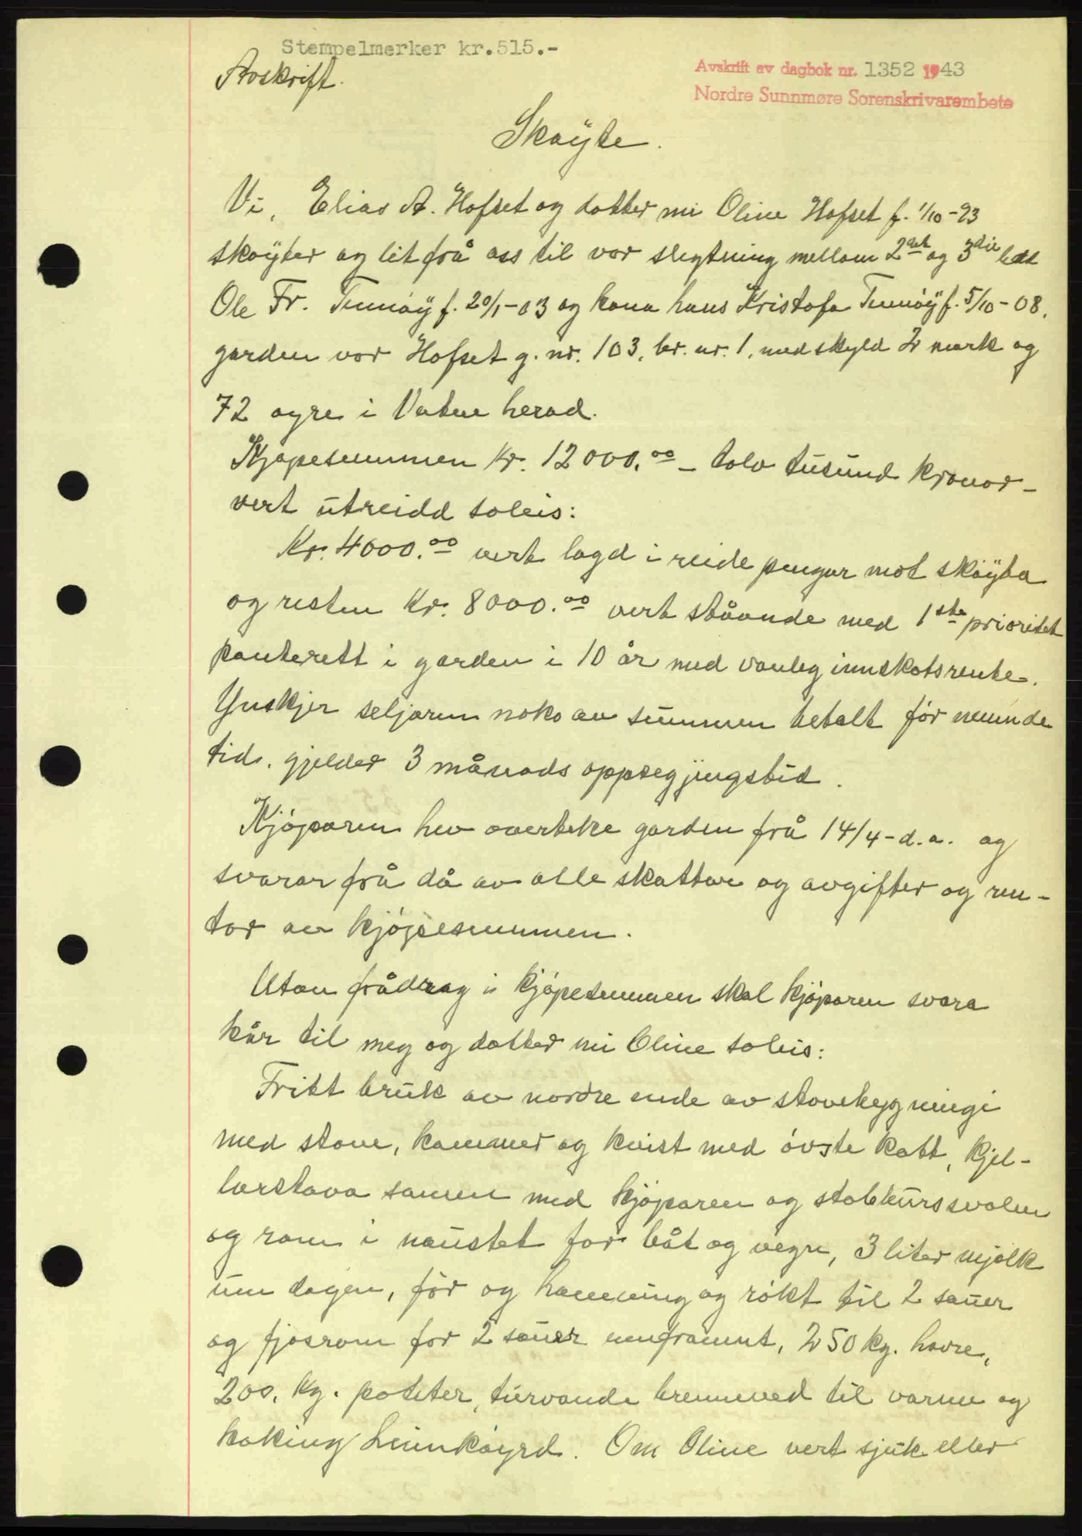 Stempelmerker kr.515.-
Avskrift.
Avskrift av dagbok nr. 1352 1943
Nordre Sunnmøre Sorenskrivarembete
Skøyte.
Vi, Elias A. Hofset og dotter mi Oline Hofset f. 1/10-23
skøyter og let frå oss til vor slegtning mellom 2det og 3die ledd
Ole Fr. Tennøy f. 20/1-03 og kona hans Kristofa Tennøy f. 5/10-08,
garden vor Hofset g. nr. 103, br. nr. 1, med skyld 2 mark og
72 øyre i Vatne herad.
Kjøpesummen Kr. 12000.00 - tolv tusund kronor -
vert utreidd soleis:
Kr. 4000.00 vert lagd i reide pengar mot skøyta
og resten Kr. 8000.00 vert ståande med 1ste prioritet
panterett i garden i 10 år med vanleg innskotsrente.
Ynskjer seljaren noko av summen betalt før nemnde
tid, gjelder 3 månads oppsegjingstid.
Kjøparen hev overteke garden frå 14/4-d.a. og
svarar frå då av alle skattar og avgifter og ren-
tor av kjøpesummen.
Utan frådrag i kjøpesummen skal kjøparen svara
kår til meg og dotter mi Oline soleis:
Fritt bruk av nordre ende av stovebygningi
med stove, kammer og kvist med øvste katt, kjel-
larstova saman med kjøparen og stabbursvalen
og rom i naustet for båt og vegn, 3 liter mjølk
um dagen, fôr og hamning og røkt til 2 sauer
og fjøsrom for 2 sauer umframt, 250 kg. havre,
200, kg. poteter, turvande brenneved til varme og
koking heimkøyrd. Om Oline vert sjuk eller